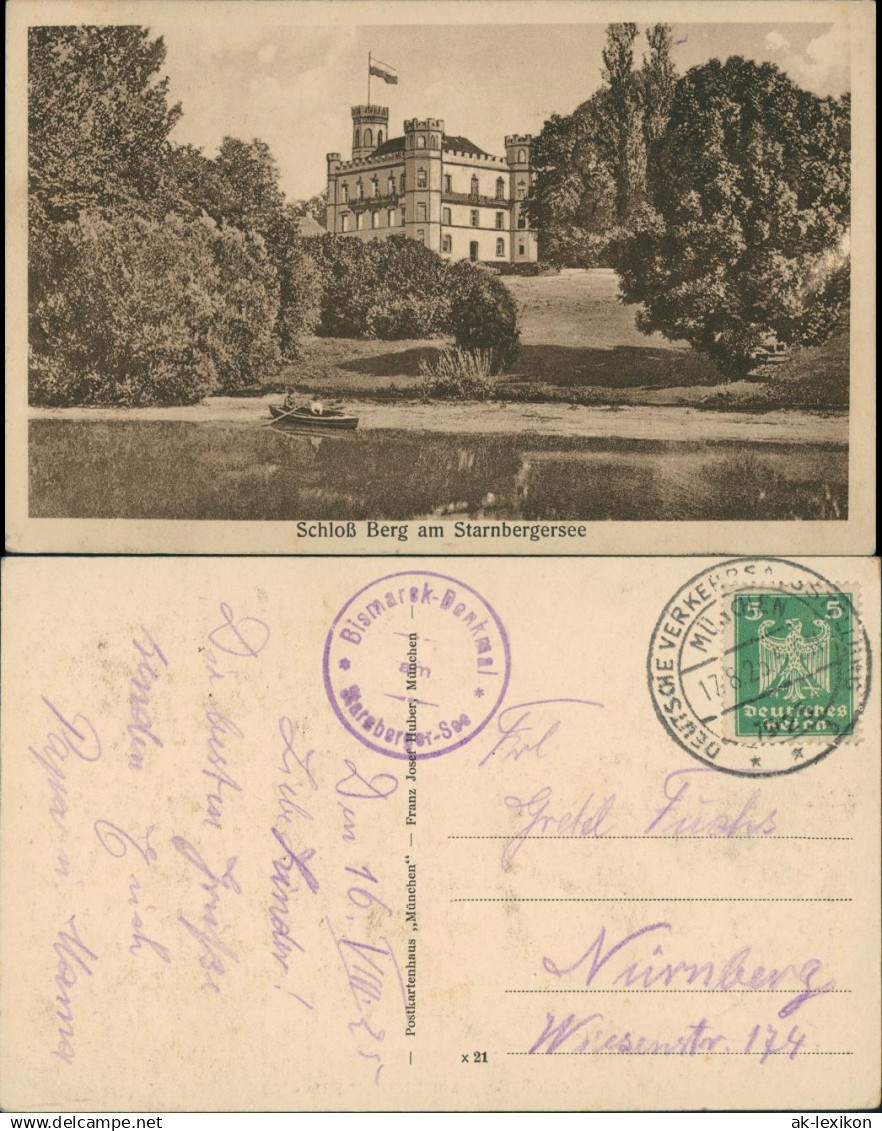 Schloß Berg am Starnbergersee
Bismarck-Denkmal
am
Starnberger-See
DEUTSCHE VERKEHRSAUSSTELLUNG
MÜNCHEN
17.8.25
1925
5 5
Deutsches
Reich
Den 16. VIII. 25
Liebe Kinder!
Die besten Grüße
senden Euch
Papa u. Mama
— Postkartenhaus „München“ — Franz Josef Huber, München —
x 21
Frl
Gretel Fuchs
Nürnberg
Wiesenstr. 174
ak-lexikon